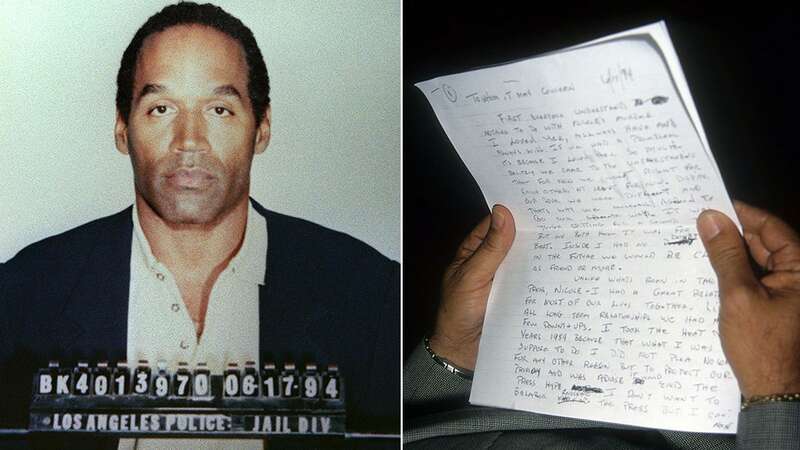 BK4013970 061794
LOS ANGELES POLICE: JAIL DIV
TO WHOM IT MAY CONCERN 6/17/94
FIRST EVERYONE UNDERSTAND
NOTHING TO DO WITH NICOLE'S MURDER
I LOVED HER, ALLWAYS HAVE AND
ALWAYS WILL. IF WE HAD A PROBLEM
IT'S BECAUSE I LOVED HER SO
WE CAME TO THE UNDERSTANDING
THAT FOR NOW WE RIGHT FOR
EACH OTHER AT LEAST FOR NOW. DISPITE
OUR LOVE WE WERE DIFFERENT AND
THAT'S WHY WE AGREED TO
GO OUR
BUT WE BOTH KNEW IT WAS FOR
BEST. INSIDE I HAD NO
IN THE FUTURE WE WOULD BE
AS FRIEND OR MORE.
UNLIKE WHATS BEEN IN THE
PRESS, NICOLE + I HAD A GREAT
FOR MOST OF OUR LIVES TOGETHER,
ALL LONG TERM RELATIONSHIPS, WE HAD A
FEW DOWNS + UPS. I TOOK THE HEAT
YEARS 1989 BECAUSE THAT WHAT I WAS
SUPPOSE TO DO I DID NOT PLEA NO
FOR ANY OTHER REASON BUT TO PROTECT OUR
PRIVACY AND WAS END THE
PRESS HYPE. I DON'T WANT TO
BELABOR THE PRESS BUT I CAN'T